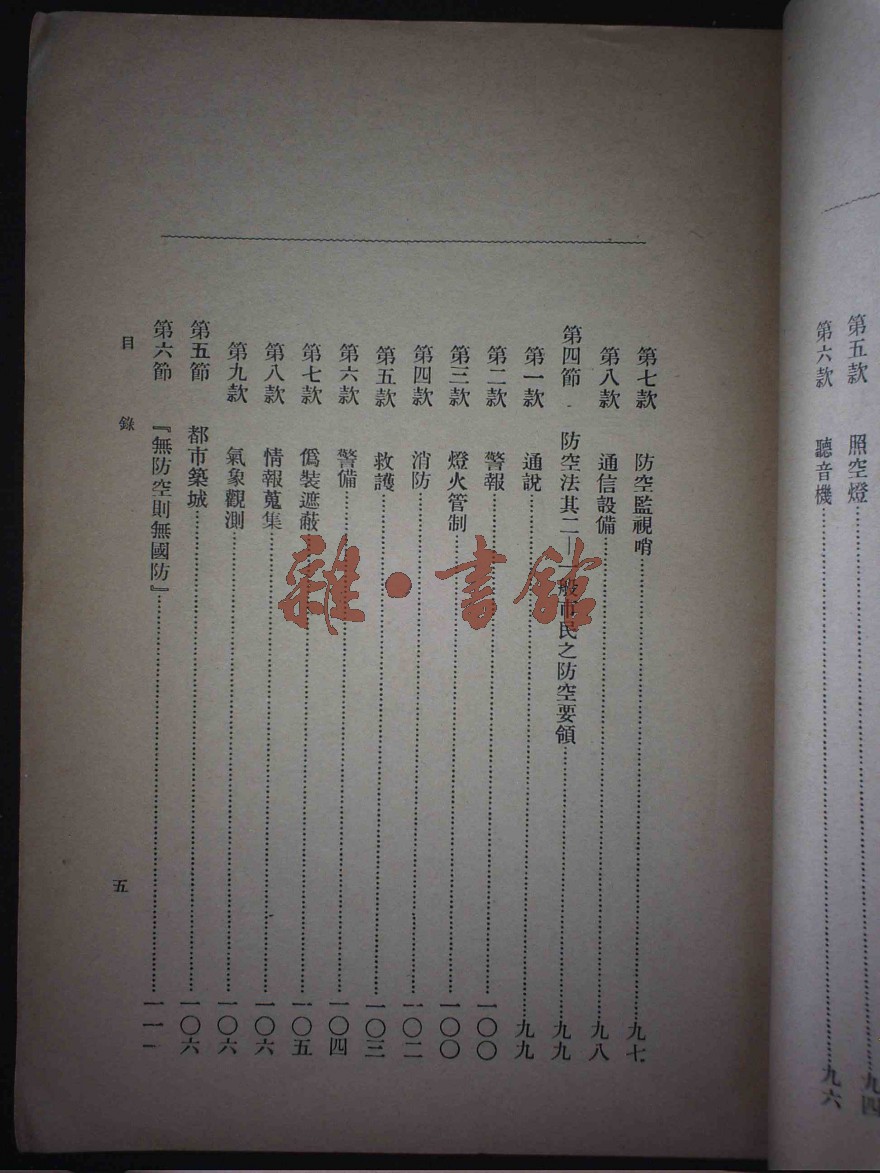 第五款　照空燈……九四
第六款　聽音機……九六
第七款　防空監視哨……九七
第八款　通信設備……九八
第四節　防空法其二—一般市民之防空要領……九九
第一款　通說……九九
第二款　警報……一〇〇
第三款　燈火管制……一〇〇
第四款　消防……一〇二
第五款　救護……一〇三
第六款　警備……一〇四
第七款　僞裝遮蔽……一〇五
第八款　情報蒐集……一〇六
第九款　氣象觀測……一〇六
第五節　都市築城……一〇六
第六節　『無防空則無國防』……一一一
目　錄　五
雜·書館